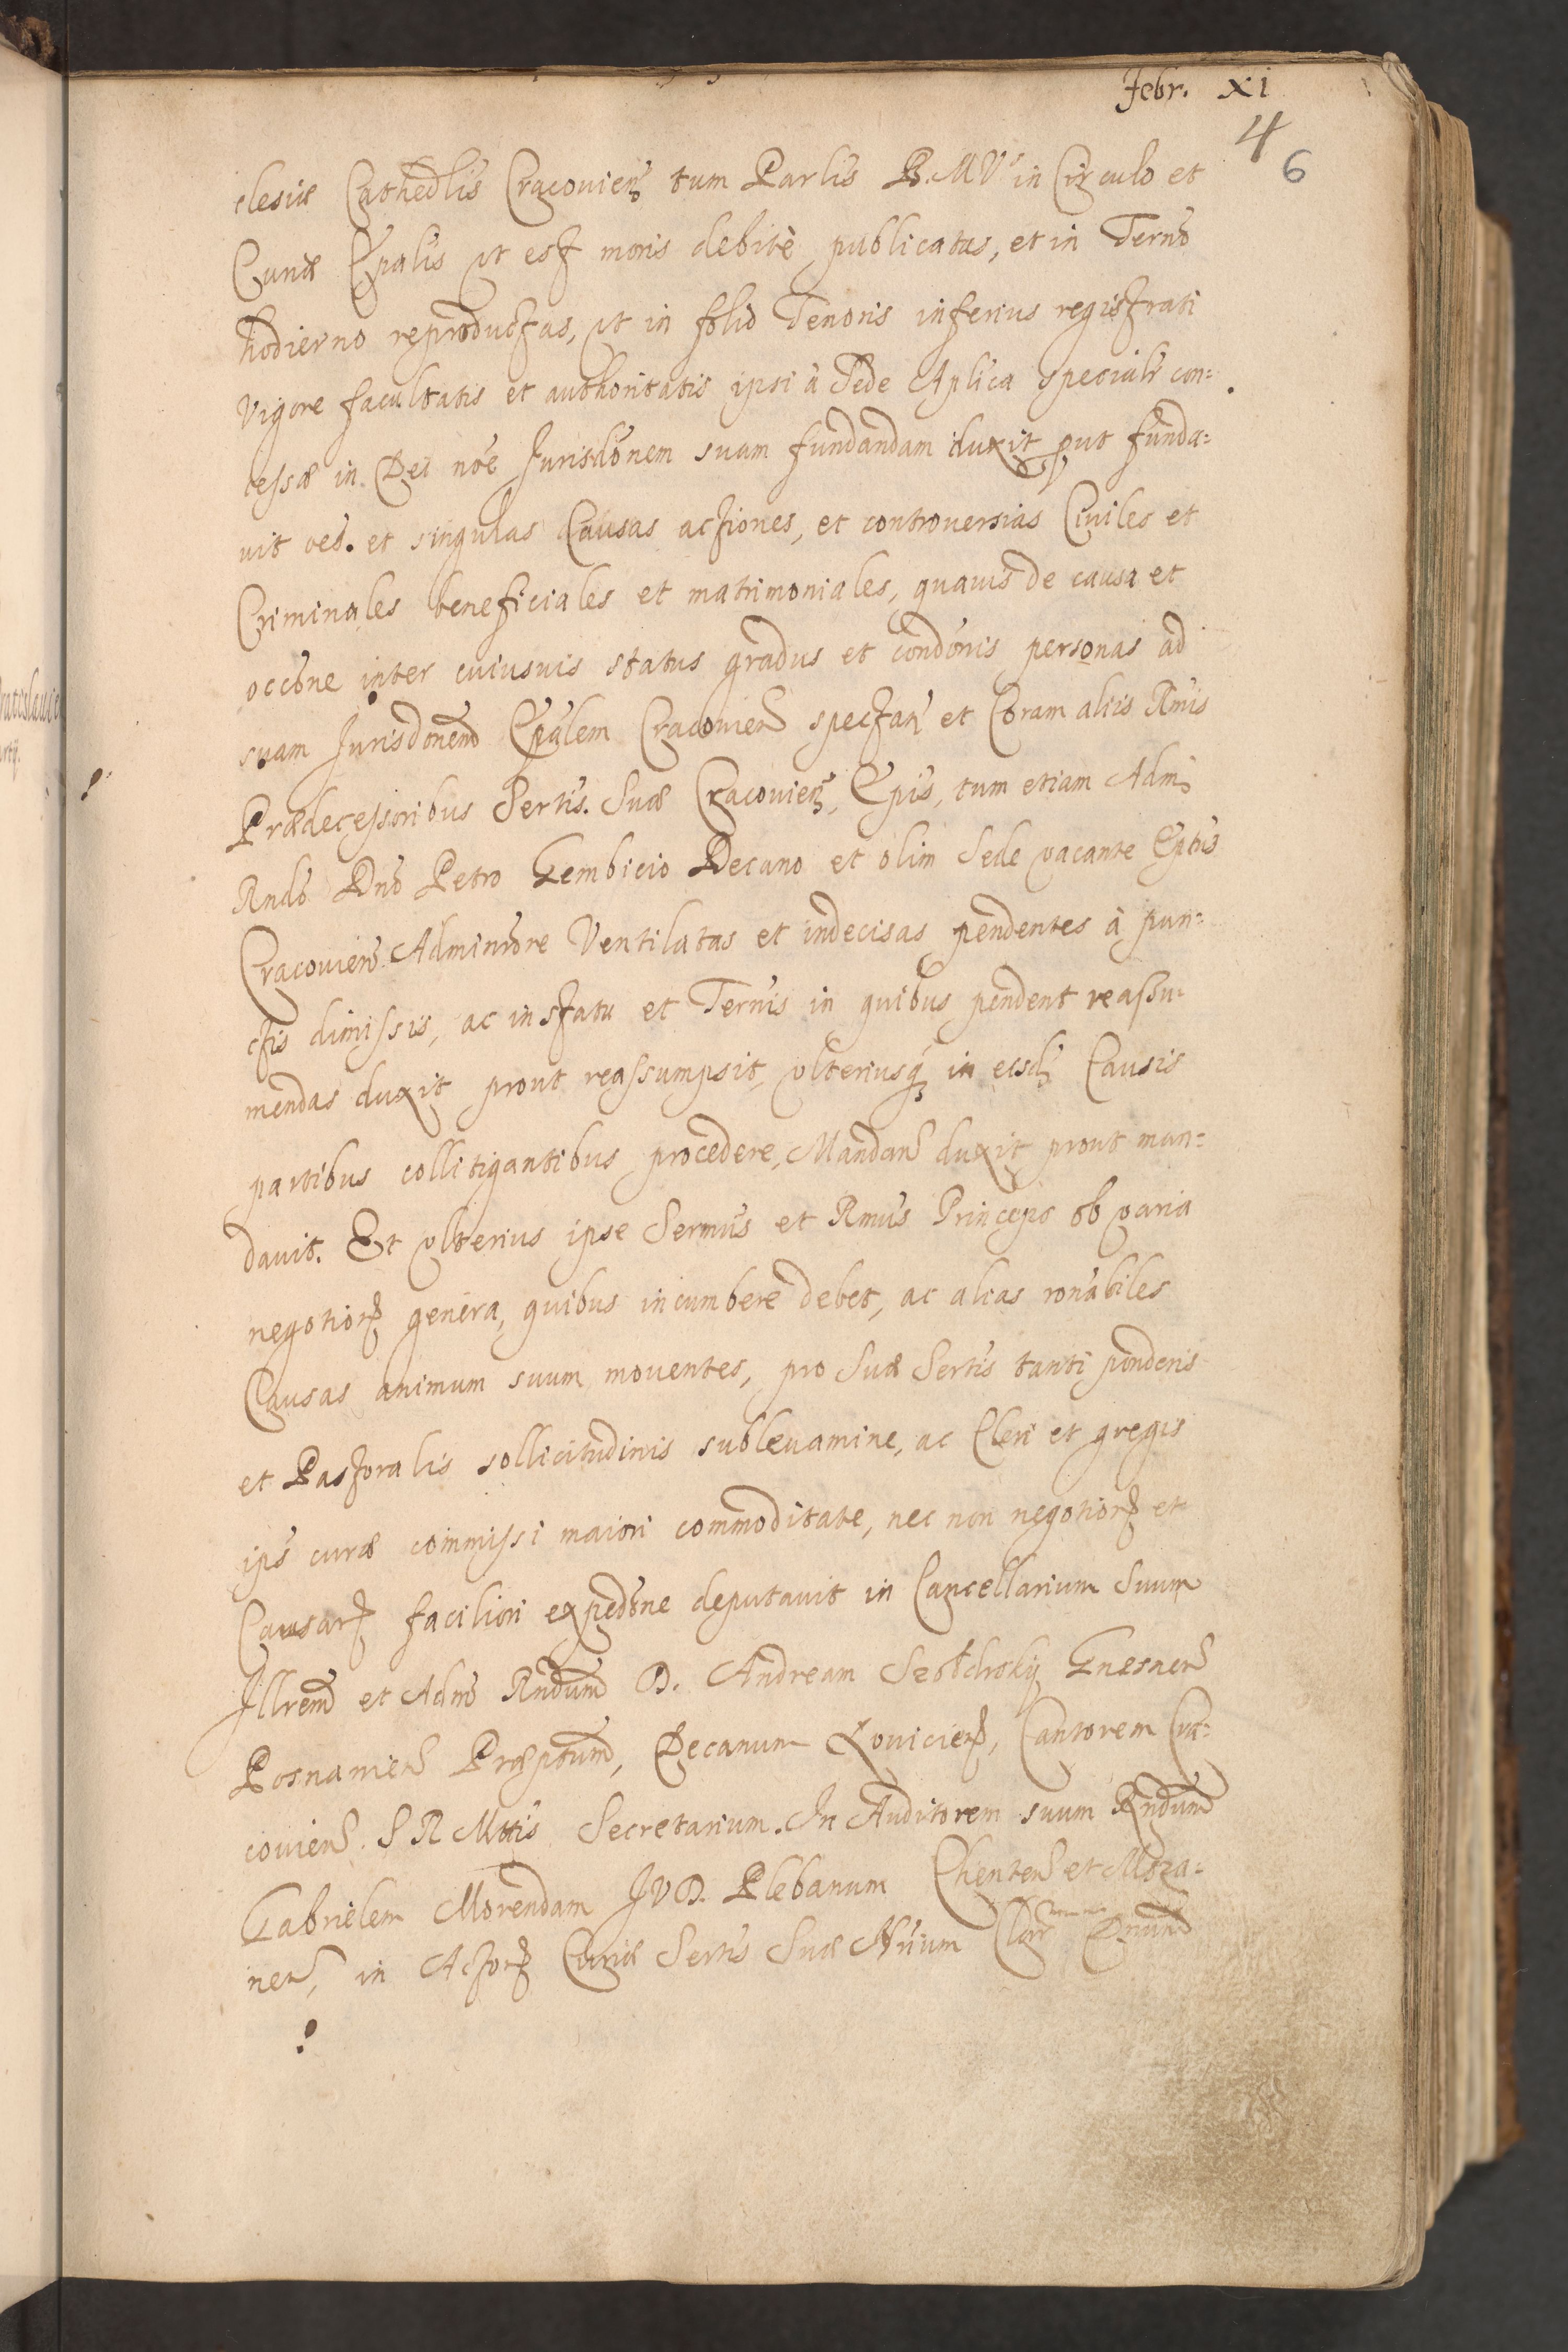 Febr. XI
4
6
clesiæ Cathedlis Cracovien tum Parlis B. M V in Circulo et
Curiæ Epalis ut est moris debitè publicatas, et in Terno
hodierno reproductas, ut in folio Tenoris inferius registrati
Vigore facultatis et authoritatis ipsi à Sede Aplica specialr con=
cessæ in Dei nõe Jurisdõnem suam fundandam duxit put funda=
vit oes. et singulas Causas actiones, et controversias Civiles et
Criminales beneficiales et matrimoniales, quavis de causa et
occõne inter cuiusvis status gradus et condõnis personas ad
suam Jurisdõnem Epalem Cracovien spectan et Coram aliis Rmis
Prædecessoribus Sertis. Suæ Cracovien, Epis, tum etiam Adm
Rndo Dno Petro Gembicio Decano et olim Sede vacante Eptus
Cracovien Adminrore Ventilatas et indecisas pendentes à pun=
ctis dimissis, ac in statu et Ternis in quibus pendent reassu=
mendas duxit prout reassumpsit, ulteriusq in eisd Causis
partibus collitigantibus procedere, Mandan duxit prout man=
davit. Et ulterius ipse Sermus et Rmus Princeps ob varia
negotior genera, quibus incumbere debet, ac alias ronabiles
Causas animum suum moventes, pro Suæ Sertis tanti ponderis
et Pastoralis sollicitudinis sublevamine, ac Cleri et gregis
ips curæ commissi maiori commoditate, nec non negotior et
Causar faciliori expedõne deputavit in Cancellarium Suum
Illrem et Adm Rndum D. Andream Gnesnen
Posnanien Præptum, Decanum Lovicien, Cantorem Cra=
covien. S R Mttis Secretarium. In Auditorem suum Rndum
Gabrielem Morendam J V D. Plebanum Chenten et Moza=
nen, in Actor Curiæ Sertis Suæ Nrium Clar Dnum